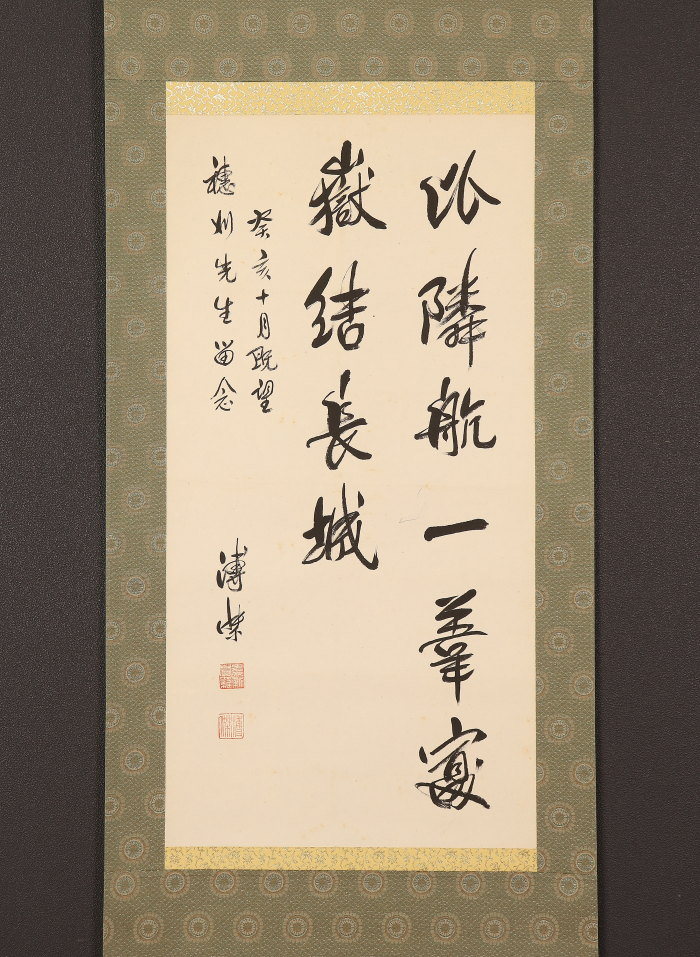 比隣航一葦富
嶽結長城
癸亥十月既望
穗州先生留念
溥傑